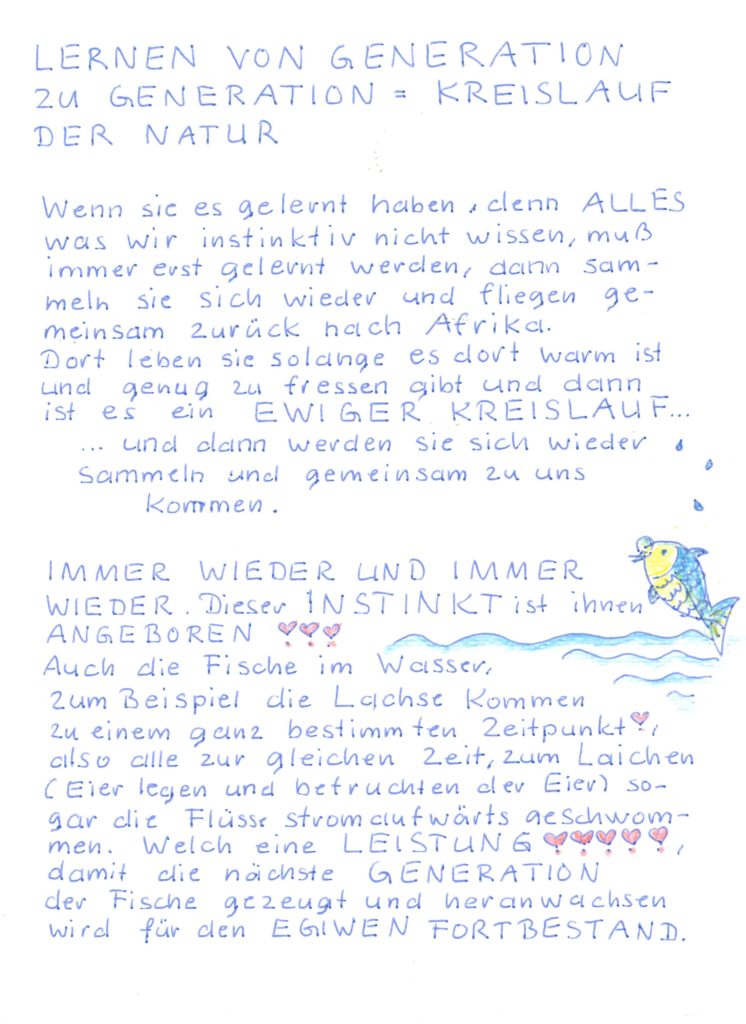 LERNEN VON GENERATION
ZU GENERATION = KREISLAUF
DER NATUR
Wenn sie es gelernt haben, denn ALLES
was wir instinktiv nicht wissen, muß
immer erst gelernt werden, dann sam-
meln sie sich wieder und fliegen ge-
meinsam zurück nach Afrika.
Dort leben sie solange es dort warm ist
und genug zu fressen gibt und dann
ist es ein EWIGER KREISLAUF...
... und dann werden sie sich wieder
sammeln und gemeinsam zu uns
kommen.
IMMER WIEDER UND IMMER
WIEDER. Dieser INSTINKT ist ihnen
ANGEBOREN !!!
Auch die Fische im Wasser,
zum Beispiel die Lachse kommen
zu einem ganz bestimmten Zeitpunkt!,
also alle zur gleichen Zeit, zum Laichen
(Eier legen und befruchten der Eier) so-
gar die Flüsse stromaufwärts geschwom-
men. Welch eine LEISTUNG !!!!!,
damit die nächste GENERATION
der Fische gezeugt und heranwachsen
wird für den EGIWEN FORTBESTAND.